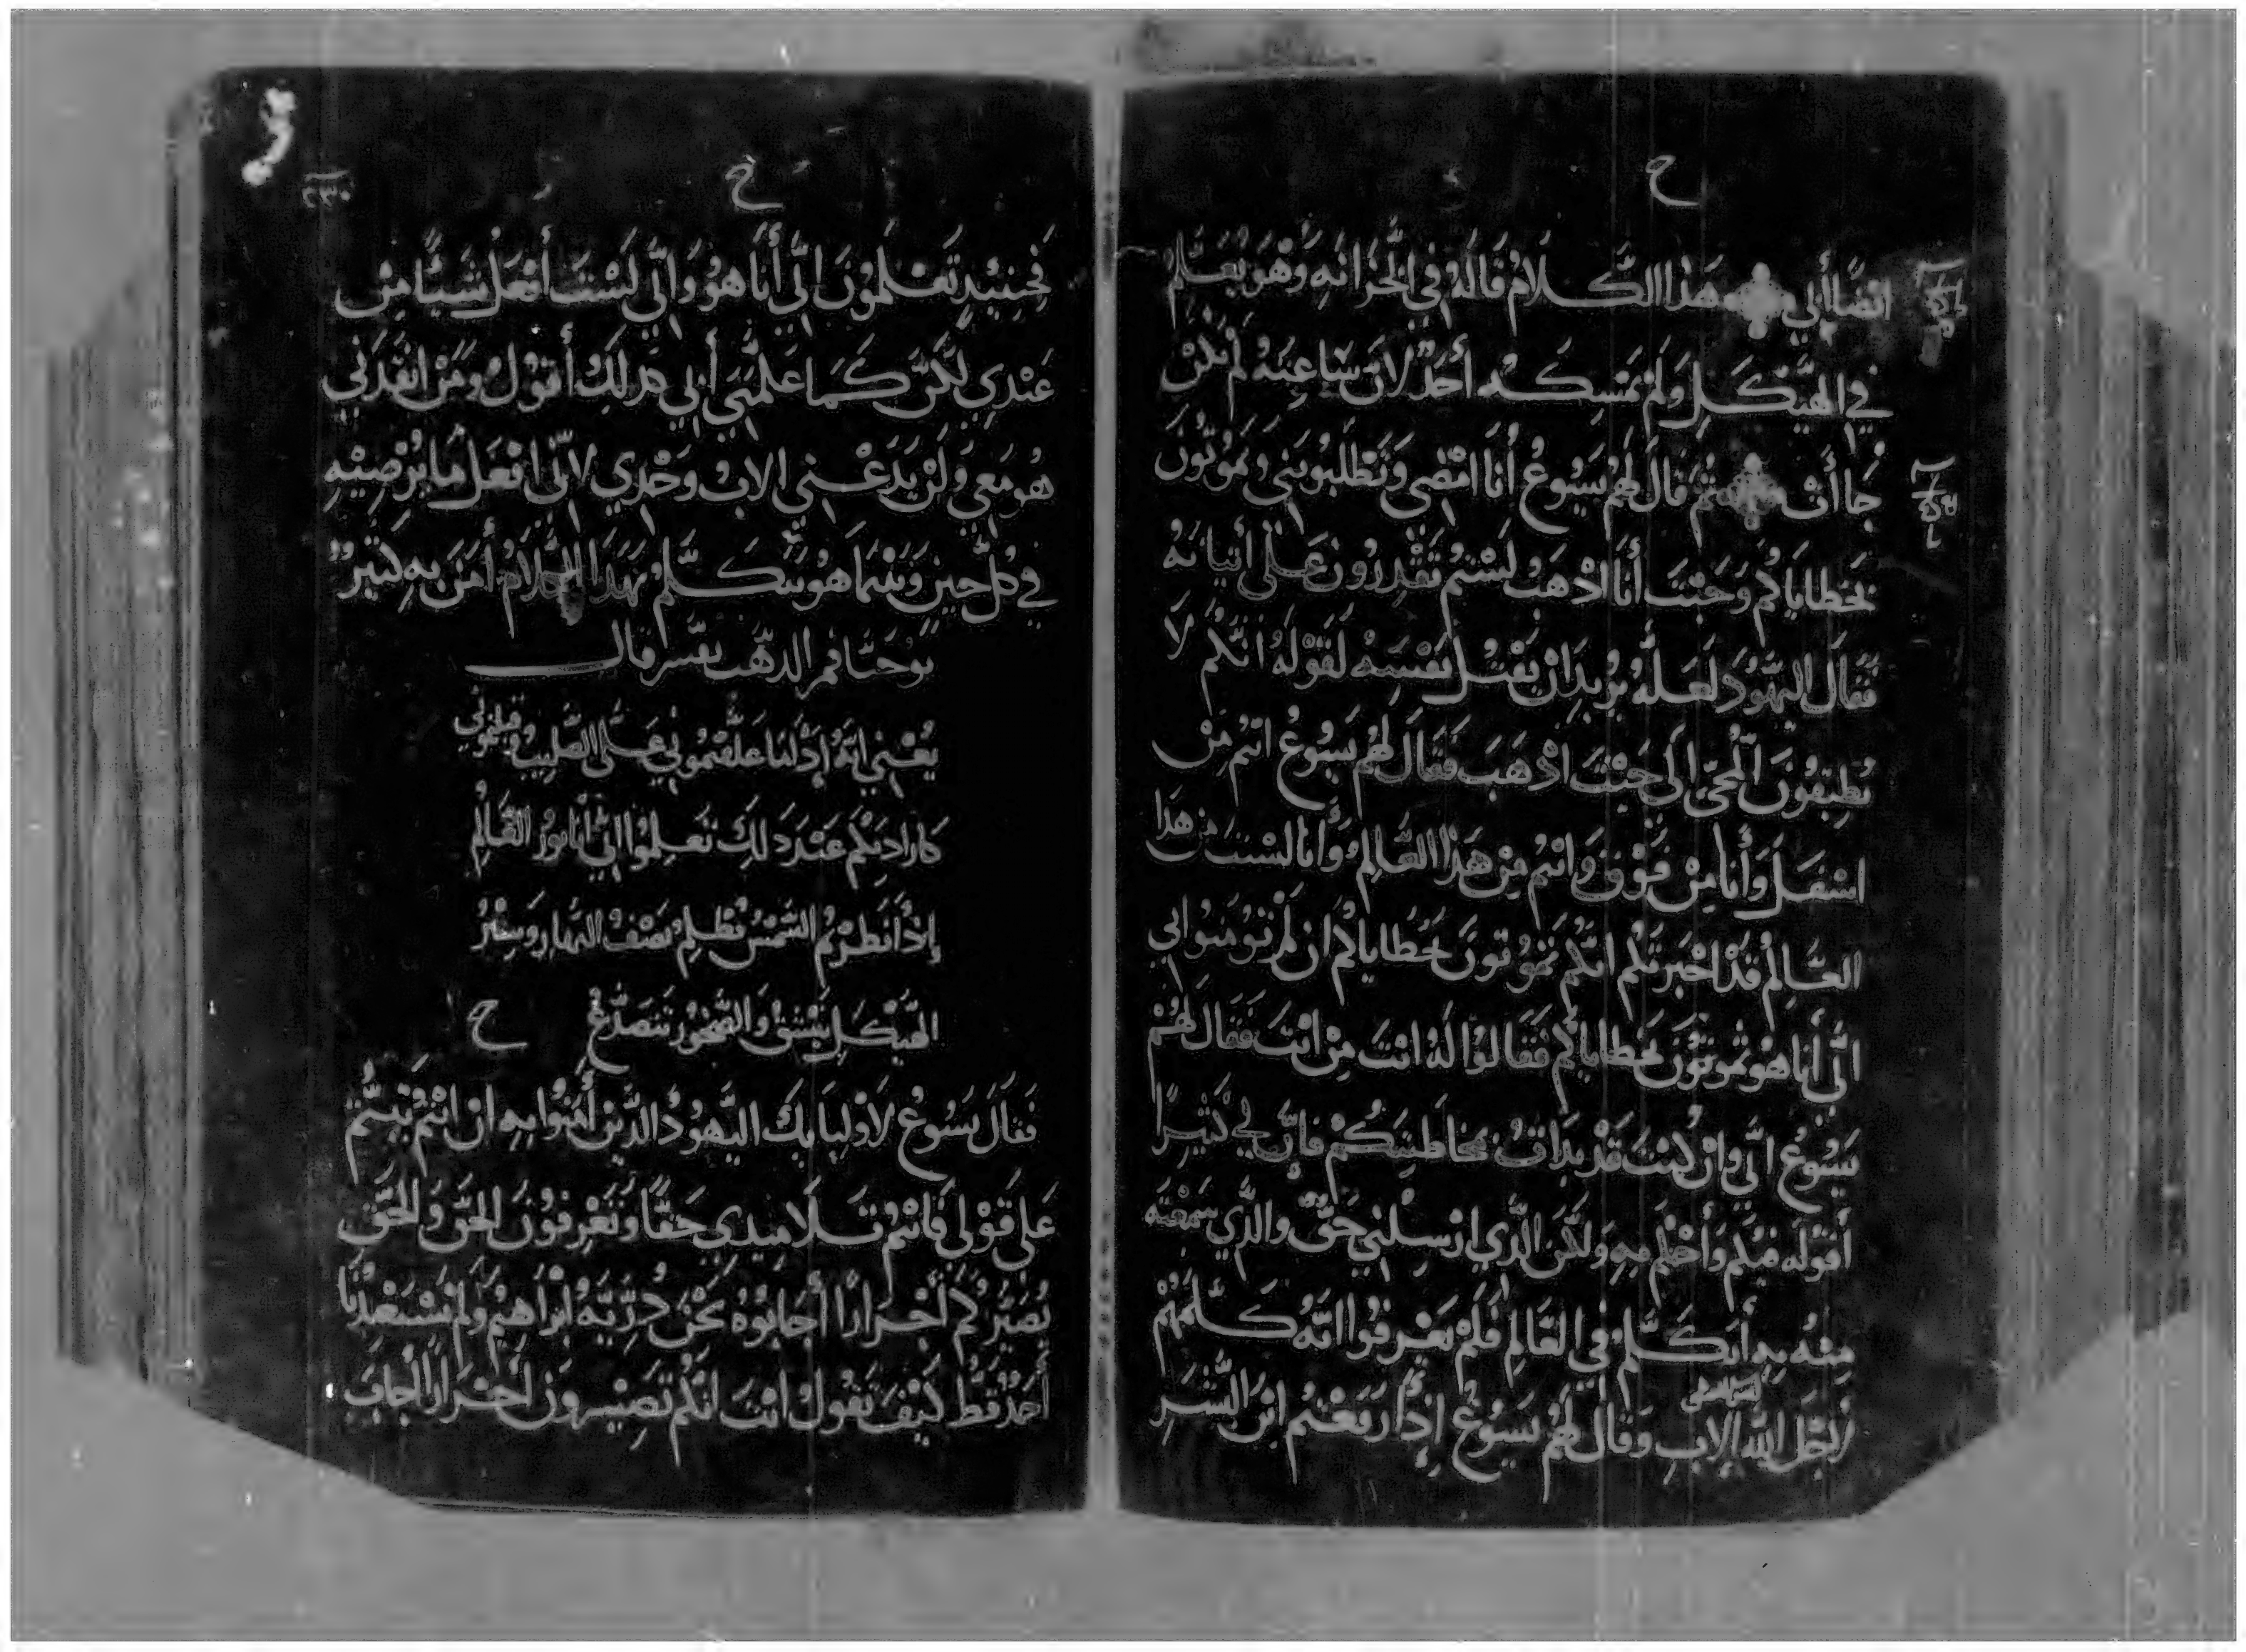 ح
ايضًا أبي هَذا الكَلامُ قَالَهُ في الخَزَانَهِ وَهْوَ يُعَلِمُ
في الهَيْكَلِ وَلَمْ يَمْسِكهُ أحَدٌ لانَ سَاعِتَهُ لَمْ تَكُنْ
جَاأتْ ثُمَّ قَالَ لَهُمْ يَسُوعُ أنَا امْضِي وَتَطْلبُونِي وتَمُوتُونَ
بخَطَايَاكُم وَحَيْثُ أنَا اذْهَبُ لَسْتُم تَقْدِرُونَ عَلَى أتيانهُ
فَقَالَ اليَهُودَ لَعَلَّهُ يُرِيدُ انْ يَقْتُلَ نَفْسَهُ لقَوْلهُ انَّكُم لَا
تُطِيقُونَ المَجِّي إلَى حَيْثُ اذْهَبَ فَقَالَ لَهُمْ يَسُوعُ انتُم مِنْ
اسْفَلَ وَأنَا مِنْ فَوْق وَانتُم مِنْ هَذا العَالِم وَأنَا لسْتُ من هذا
العَالِمُ قَدْ اخْبَرتكُم انَّكُم تَمُوتُونَ بخَطاياكُم ان لَمْ تُومنُوا بي
انِّي أنَا هُوَ تمُوتُونَ بخَطاياكُم فَقَالُوا لَهُ انْتَ مَنْ انْتَ فَقَالَ لَهُمْ
يَسُوعُ انِّي وانْ كُنْتُ قَدْ بَدَاتُ بمُخَاطبَتكُمْ فَانَّ لِي كَثيرًا
أقُولَه فيكُم وَأحْكُم بهِ وَلكن الَّذِي ارْسَلنِي حَقٌّ والذِّي سمعته
مِنْه بهِ أتكَلَّمُ في العَالِم فَلَمْ يَعْرِفُوا انَّهُ كَلَّمَهُمْ
لاجْل الله الابِ وَقَالَ لَهُمْ يَسُوعُ إذَا رَفَعْتُم ابْنَ البَشَرِ
٢٣٠
ح
فحِينَيْدٍ تَعْلَمُونَ انِّي أنَا هُوَ وَانِّي لَسْتُ أفْعَلُ شَيًا مِنْ
عنْدِي لكِنَّ كَمَا عَلَّمَنِي أبِي كذلِكَ أقُولُ ومَنْ انفَدَنِي
هُو مَعِي وَلَنْ يَدَعْنِي الابُ وَحْدِي لانِّي افْعَلُ مَا يُرْضِيهِ
فِي كُلِّ حِينٍ وَبَيْنَمَا هُوَ يَتَكَلَّمُ بهَذَا الكَلامُ أمَنَ بهِ كَثِيرٌ
يوحَنّا فَم الدهَب يفَسر قال
يُعْنِي انَّهُ إذَا مَا علقتُمونِي عَلَى الصَّلِيبُ وقتلتموني
كارادتكم عِنْدَ ذَلِكَ تَعْلِمُوا انِّي أنَا نورُ العَالِمِ
إذَا نَظَرْتُم الشَّمْسُ تظْلِمُ نصْفُ النهَارِ وسِتْرُ
الهَيْكَلِ ينْشَقُ وَالصُّخُورُ تتصَدَّعُ ح
فَقَالَ يَسُوعُ لاوْليَايكَ اليَهُودُ الَّذينَ أمَنُوا بهِ ان انْتُم ثَبتُّم
عَلَى قَوْلِي فَانتُم تَلامِيدِي حَقًّا وَتَعْرِفُونَ الحَقَّ وَالحَقّ
يُصَيِّرُكُم أحْرَارًا أجَابُوُهُ نَحْنُ ذرِّيَّهُ ابرَاهِيمُ وَلَمْ يَسْتَعْبْدنَا
أحَدٌ قَطُ كَيْفَ تَقُولُ انْتَ انَّكُمْ تَصِيْرُونَ احْرَارًا أجَابَ